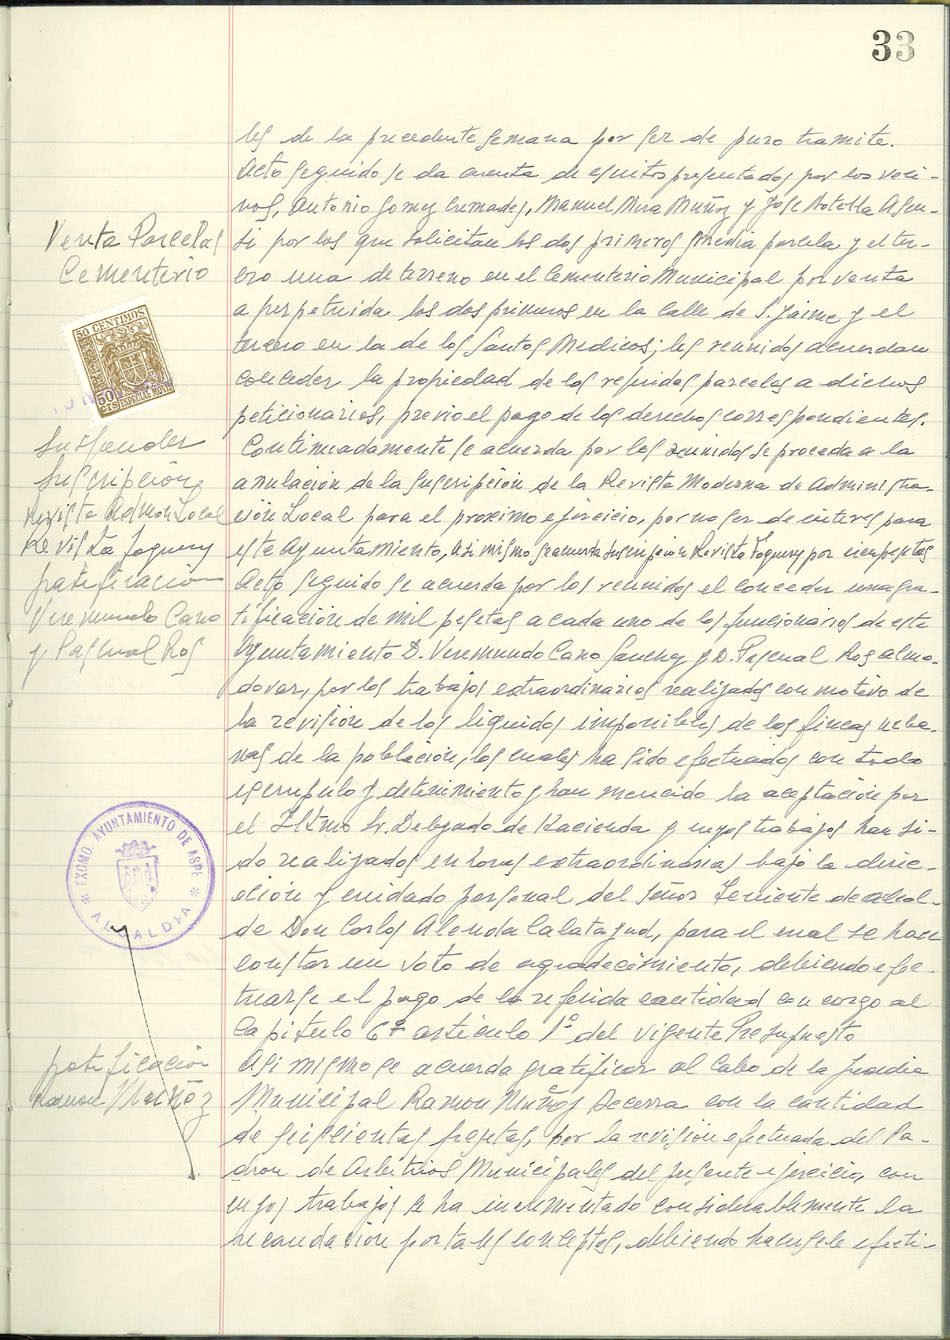 33
les de la precedente semana por ser de puro tramite.
Acto seguido se da cuenta de escritos presentados por los veci-
nos, Antonio Gomez Cremades, Manuel Mira Muñoz y Jose Botella Asen-
Venta Parcelas
Cementerio
si por los que solicitan los dos primeros media parcela y el ter-
cero una de terreno en el Cementerio Municipal por venta
a perpetuida los dos primeros en la Calle de S. Jaime y el
tercero en la de los Santos Medicos; los reunidos acuerdan
conceder la propiedad de los referidos parcelas a dichos
peticionarios, previo el pago de los derechos correspondientes.
50 CENTIMOS
50
CTS
ESPECIAL MOVIL
Suspender
Suscripción
Revista Admon Local
Revista Foguery
Continuadamente se acuerda por los reunidos se proceda a la
anulación de la suscripción de la Revista Moderna de Administra-
ción Local para el proximo ejercicio, por no ser de interes para
este Ayuntamiento, asi mismo se acuerda suscripcion Revista Foguery por cien pesetas
gratificación
Veremundo Cano
y Pascual Ros
Acto seguido se acuerda por los reunidos el conceder una gra-
tificación de mil pesetas a cada uno de los funcionarios de este
Ayuntamiento D. Veremundo Cano Sanchez y D. Pascual Ros Almo-
dovar, por los trabajos extraordinarios realizados con motivo de
la revisión de los liquidos imponibles de las fincas urba-
nas de la población, los cuales ha sido efectuados con todo
escrupulo y detenimiento y han merecido la aceptación por
el Iltmo Sr. Delegado de Hacienda y cuyos trabajos han si-
do realizados en horas extraordinarias bajo la direc-
ción y cuidado personal del Señor Teniente de Alcal-
de Don Carlos Alenda Calatayud, para el cual se hace
constar un voto de agradecimiento, debiendo efec-
tuarse el pago de la referida cantidad con cargo al
Capitulo 6º articulo 1º del vigente Presupuesto
EXCMO. AYUNTAMIENTO DE ASPE
ALCALDIA
gratificación
Ramon Muñoz
Asi mismo se acuerda gratificar al Cabo de la Guardia
Municipal Ramon Muñoz Becerra con la cantidad
de seiscientas pesetas, por la revisión efectuada del Pa-
dron de Arbitrios Municipales del presente ejercicio, con
cuyos trabajos se ha incrementado considerablemente la
recaudación por tales conceptos, debiendo hacersele efecti-